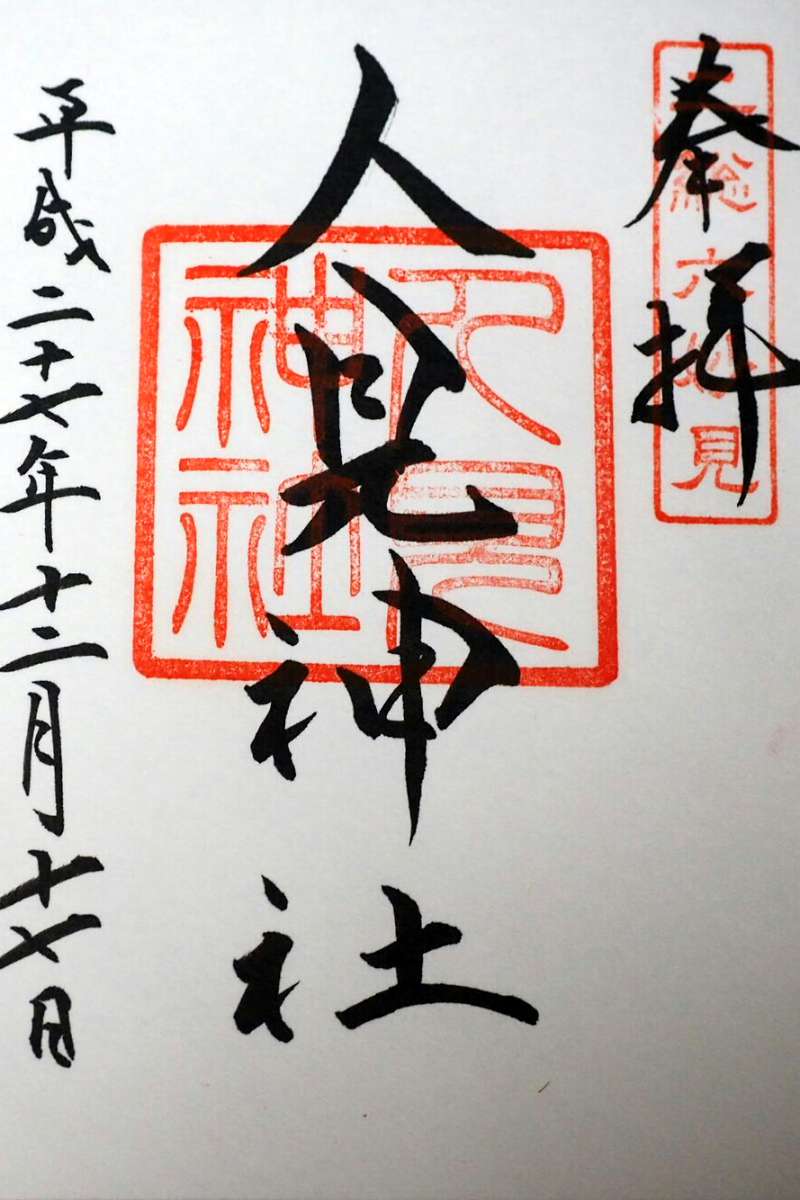 奉拝
上総六妙見
人見神社
人見神社
平成二十七年十二月十七日